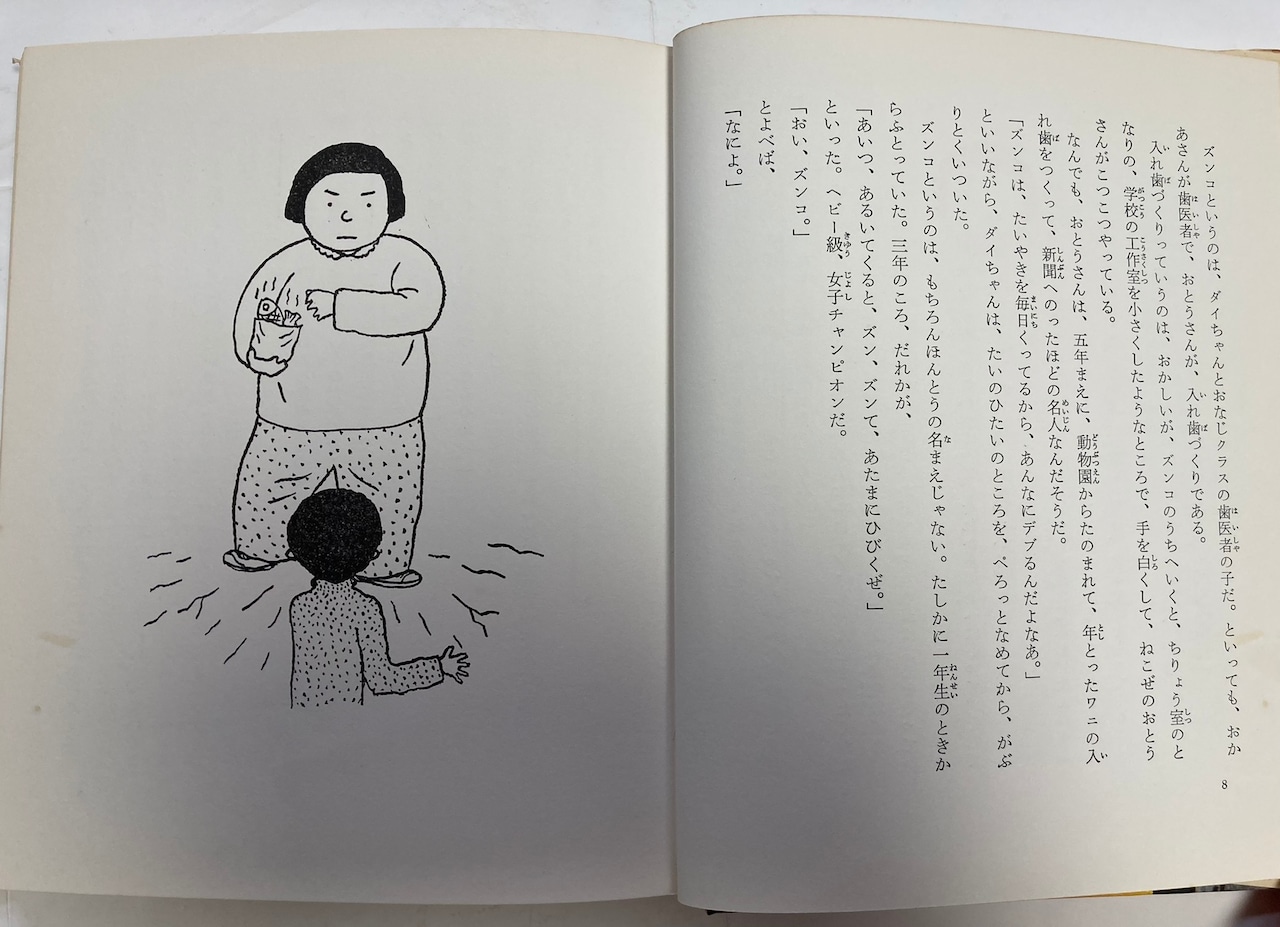 ズンコというのは、ダイちゃんとおなじクラスの歯医者の子だ。といっても、おか
あさんが歯医者で、おとうさんが、入れ歯づくりである。
入れ歯づくりっていうのは、おかしいが、ズンコのうちへいくと、ちりょう室のと
なりの、学校の工作室を小さくしたようなところで、手を白くして、ねこぜのおとう
さんがこつこつやっている。
なんでも、おとうさんは、五年まえに、動物園からたのまれて、年とったワニの入
れ歯をつくって、新聞へのったほどの名人なんだそうだ。
「ズンコは、たいやきを毎日くってるから、あんなにデブるんだよなあ。」
といいながら、ダイちゃんは、たいのひたいのところを、ぺろっとなめてから、がぶ
りとくいついた。
ズンコというのは、もちろんほんとうの名まえじゃない。たしかに一年生のときか
らふとっていた。三年のころ、だれかが、
「あいつ、あるいてくると、ズン、ズンて、あたまにひびくぜ。」
といった。ヘビー級、女子チャンピオンだ。
「おい、ズンコ。」
とよべば、
「なによ。」
8